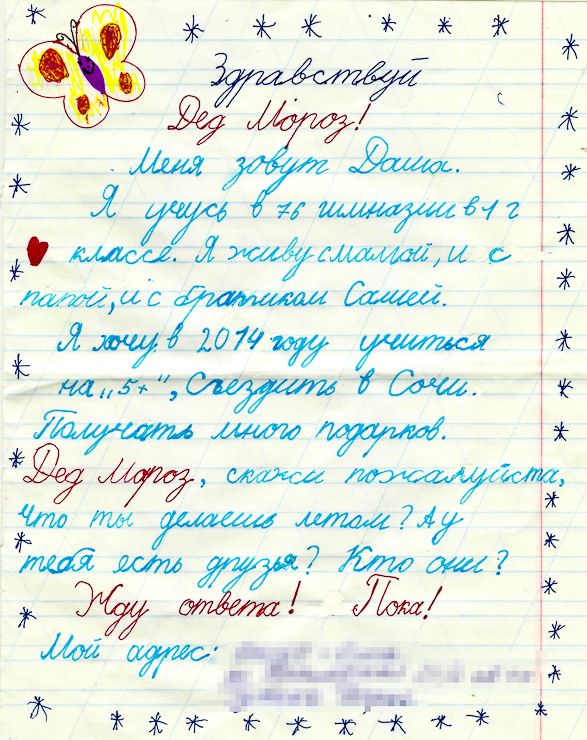 Здравствуй
Дед Мороз!
Меня зовут Даша.
Я учусь в 76 гимназии в 1 г
классе. Я живу с мамой, и с
папой, и с братиком Сашей.
Я хочу в 2014 году учиться
на „5+“, Съездить в Сочи.
Получать много подарков.
Дед Мороз, скажи пожалуйста,
что ты делаешь летом? А у
тебя есть друзья? Кто они?
Жду ответа! Пока!
Мой адрес: